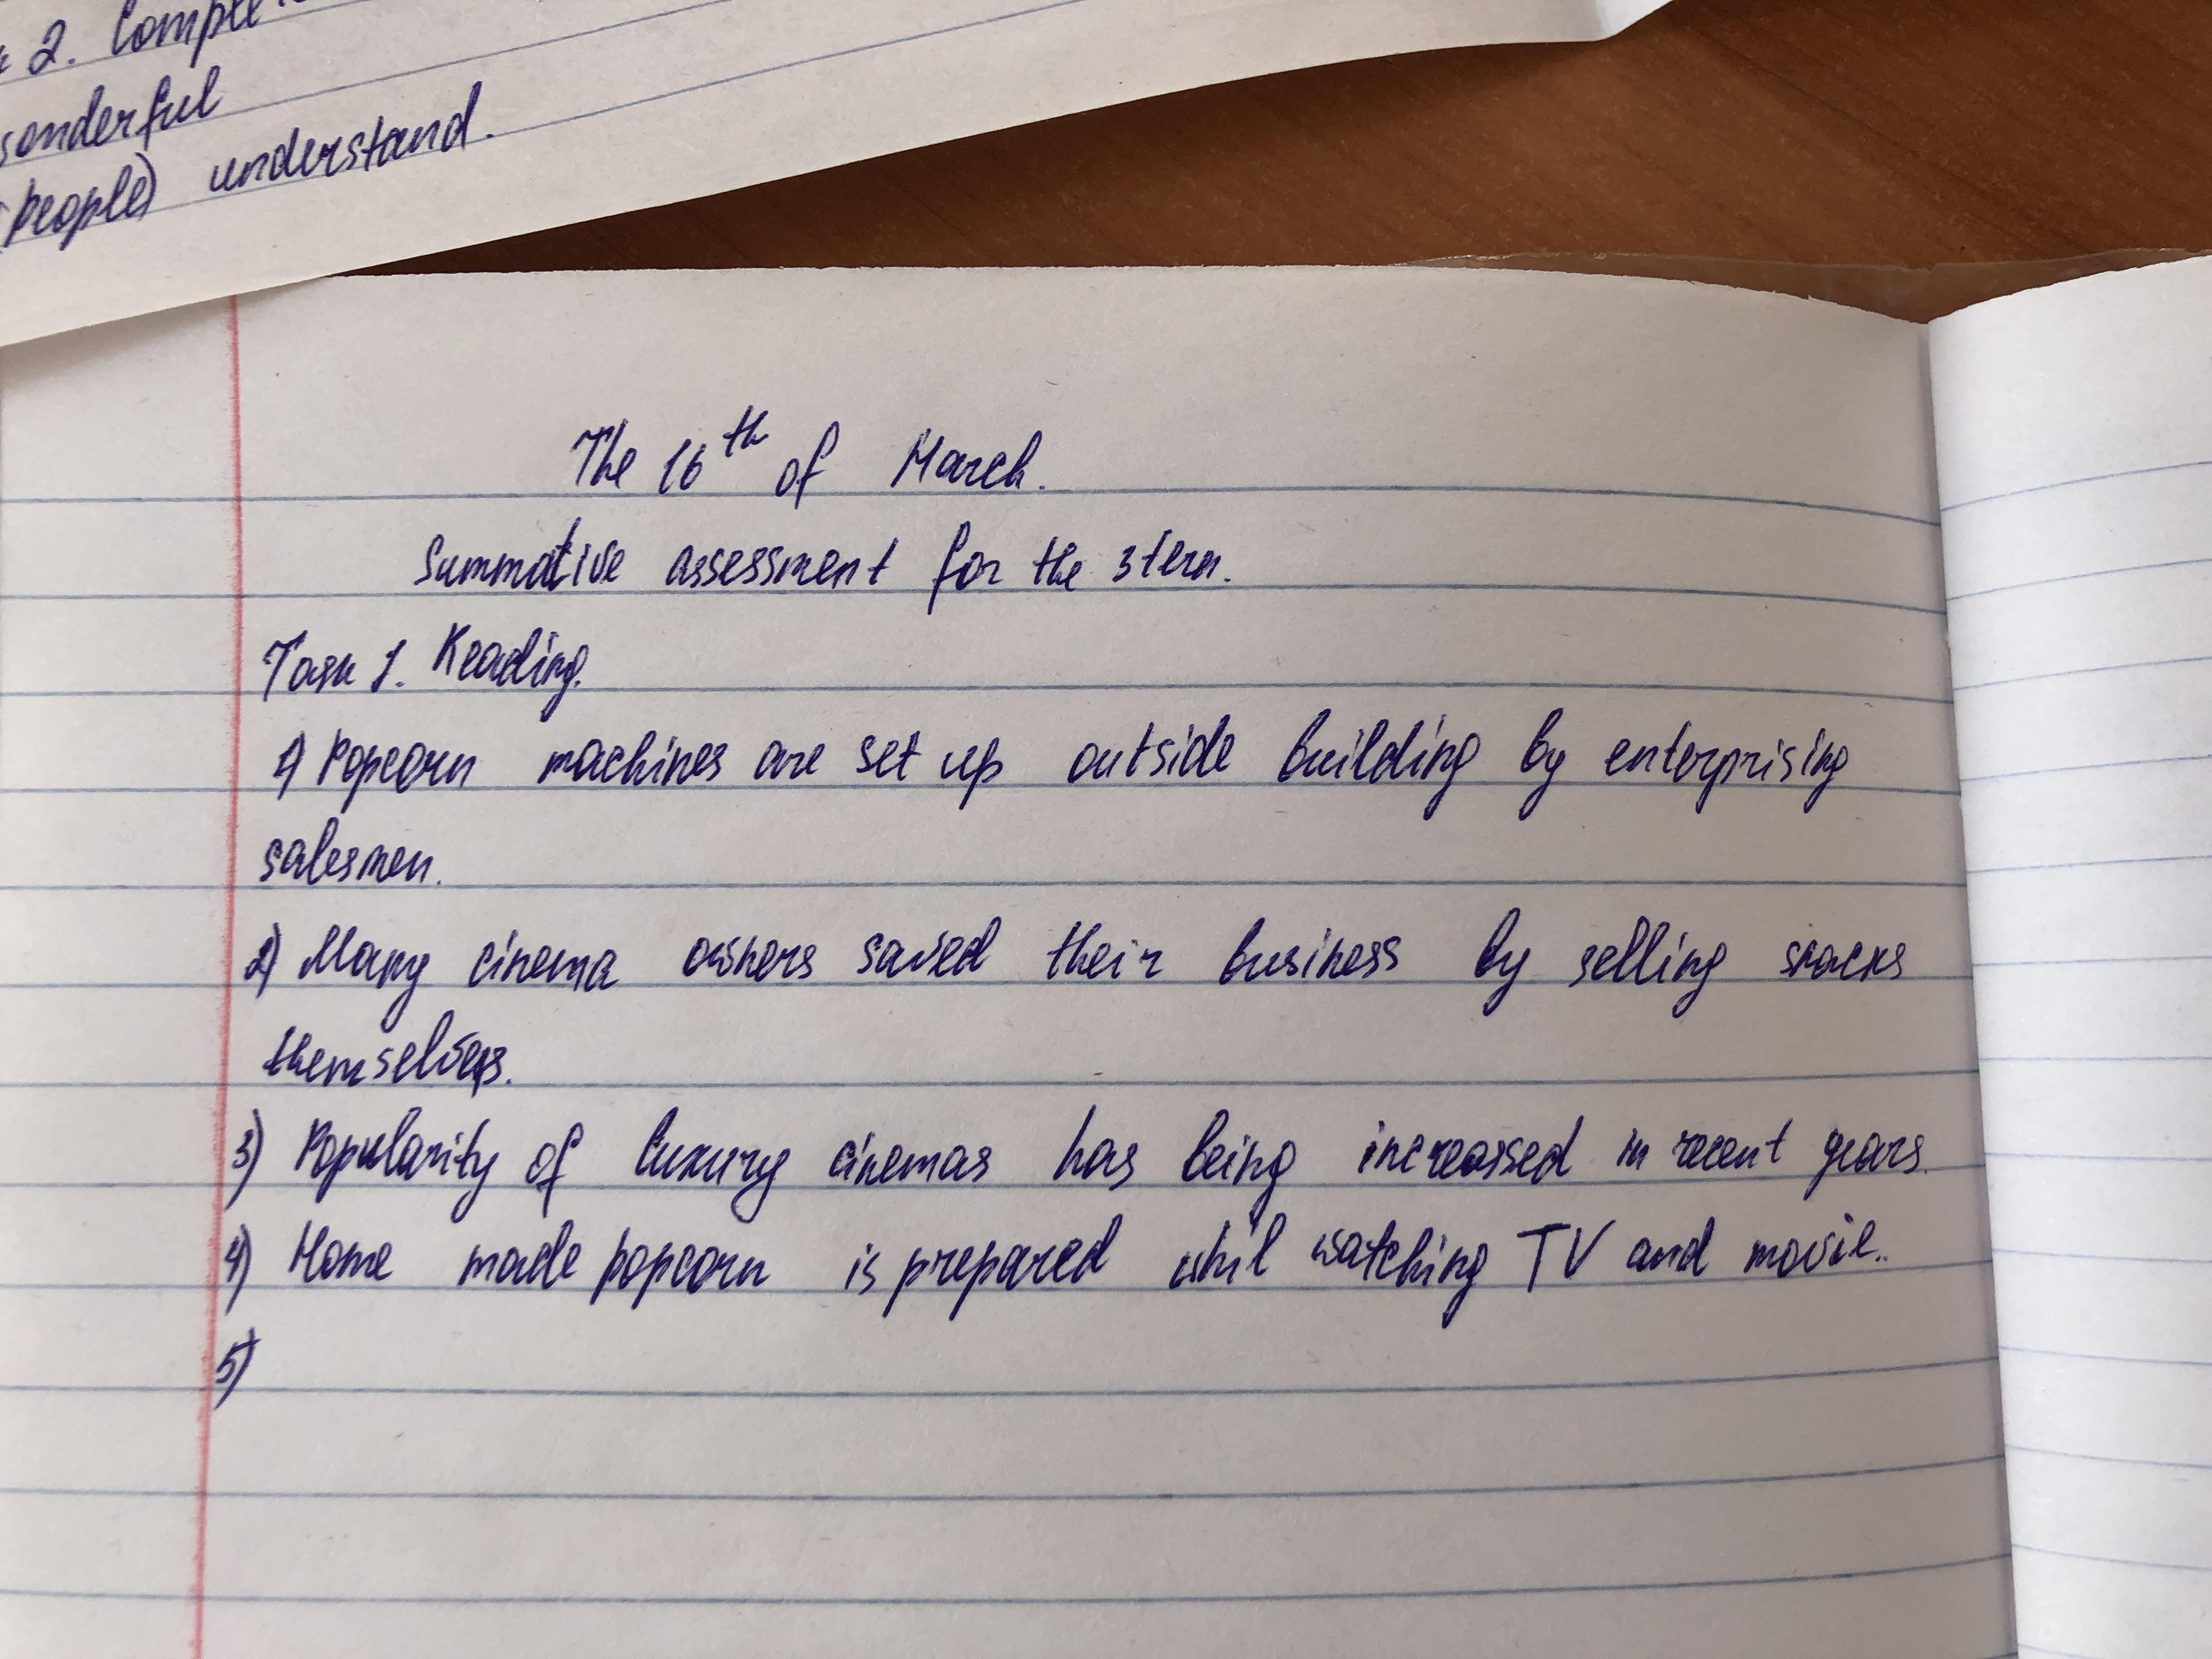 2. Comple
onderful
people) understand.
The 16th of March.
Summative assessment for the 3 term.
Task 1. Reading.
1) Popcorn machines are set up outside building by enterprising
salesmen.
2) Many cinema owners saved their business by selling snacks
themselves.
3) Popularity of luxury cinemas has being increased in recent years.
4) Home made popcorn is prepared whil watching TV and movie..
5)